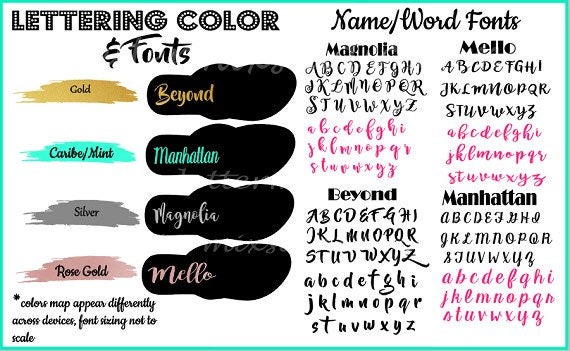 LETTERING COLOR
& Fonts
Gold
Beyond
Caribe/Mint
Manhattan
Silver
Magnolia
Rose Gold
Mello
*colors map appear differently
across devices, font sizing not to
scale
Name/Word Fonts
Magnolia
ABCDEFGHI
JKLMNOPQR
STUVWXYZ
abcdefghi
jklmnopqr
stuvwxyz
Mello
ABCDEFGHI
JKLMNOPQR
STUVWXYZ
abcdefghi
jklmnopqr
stuvwxyz
Beyond
ABCDEFGHI
JKLMNOPQR
STUVWXYZ
abcdefghi
jklmnopqr
stuvwxyz
Manhattan
ABCDEFGHI
JKLMNOPQR
STUVWXYZ
abcdefghi
jklmnopqr
stuvwxyz